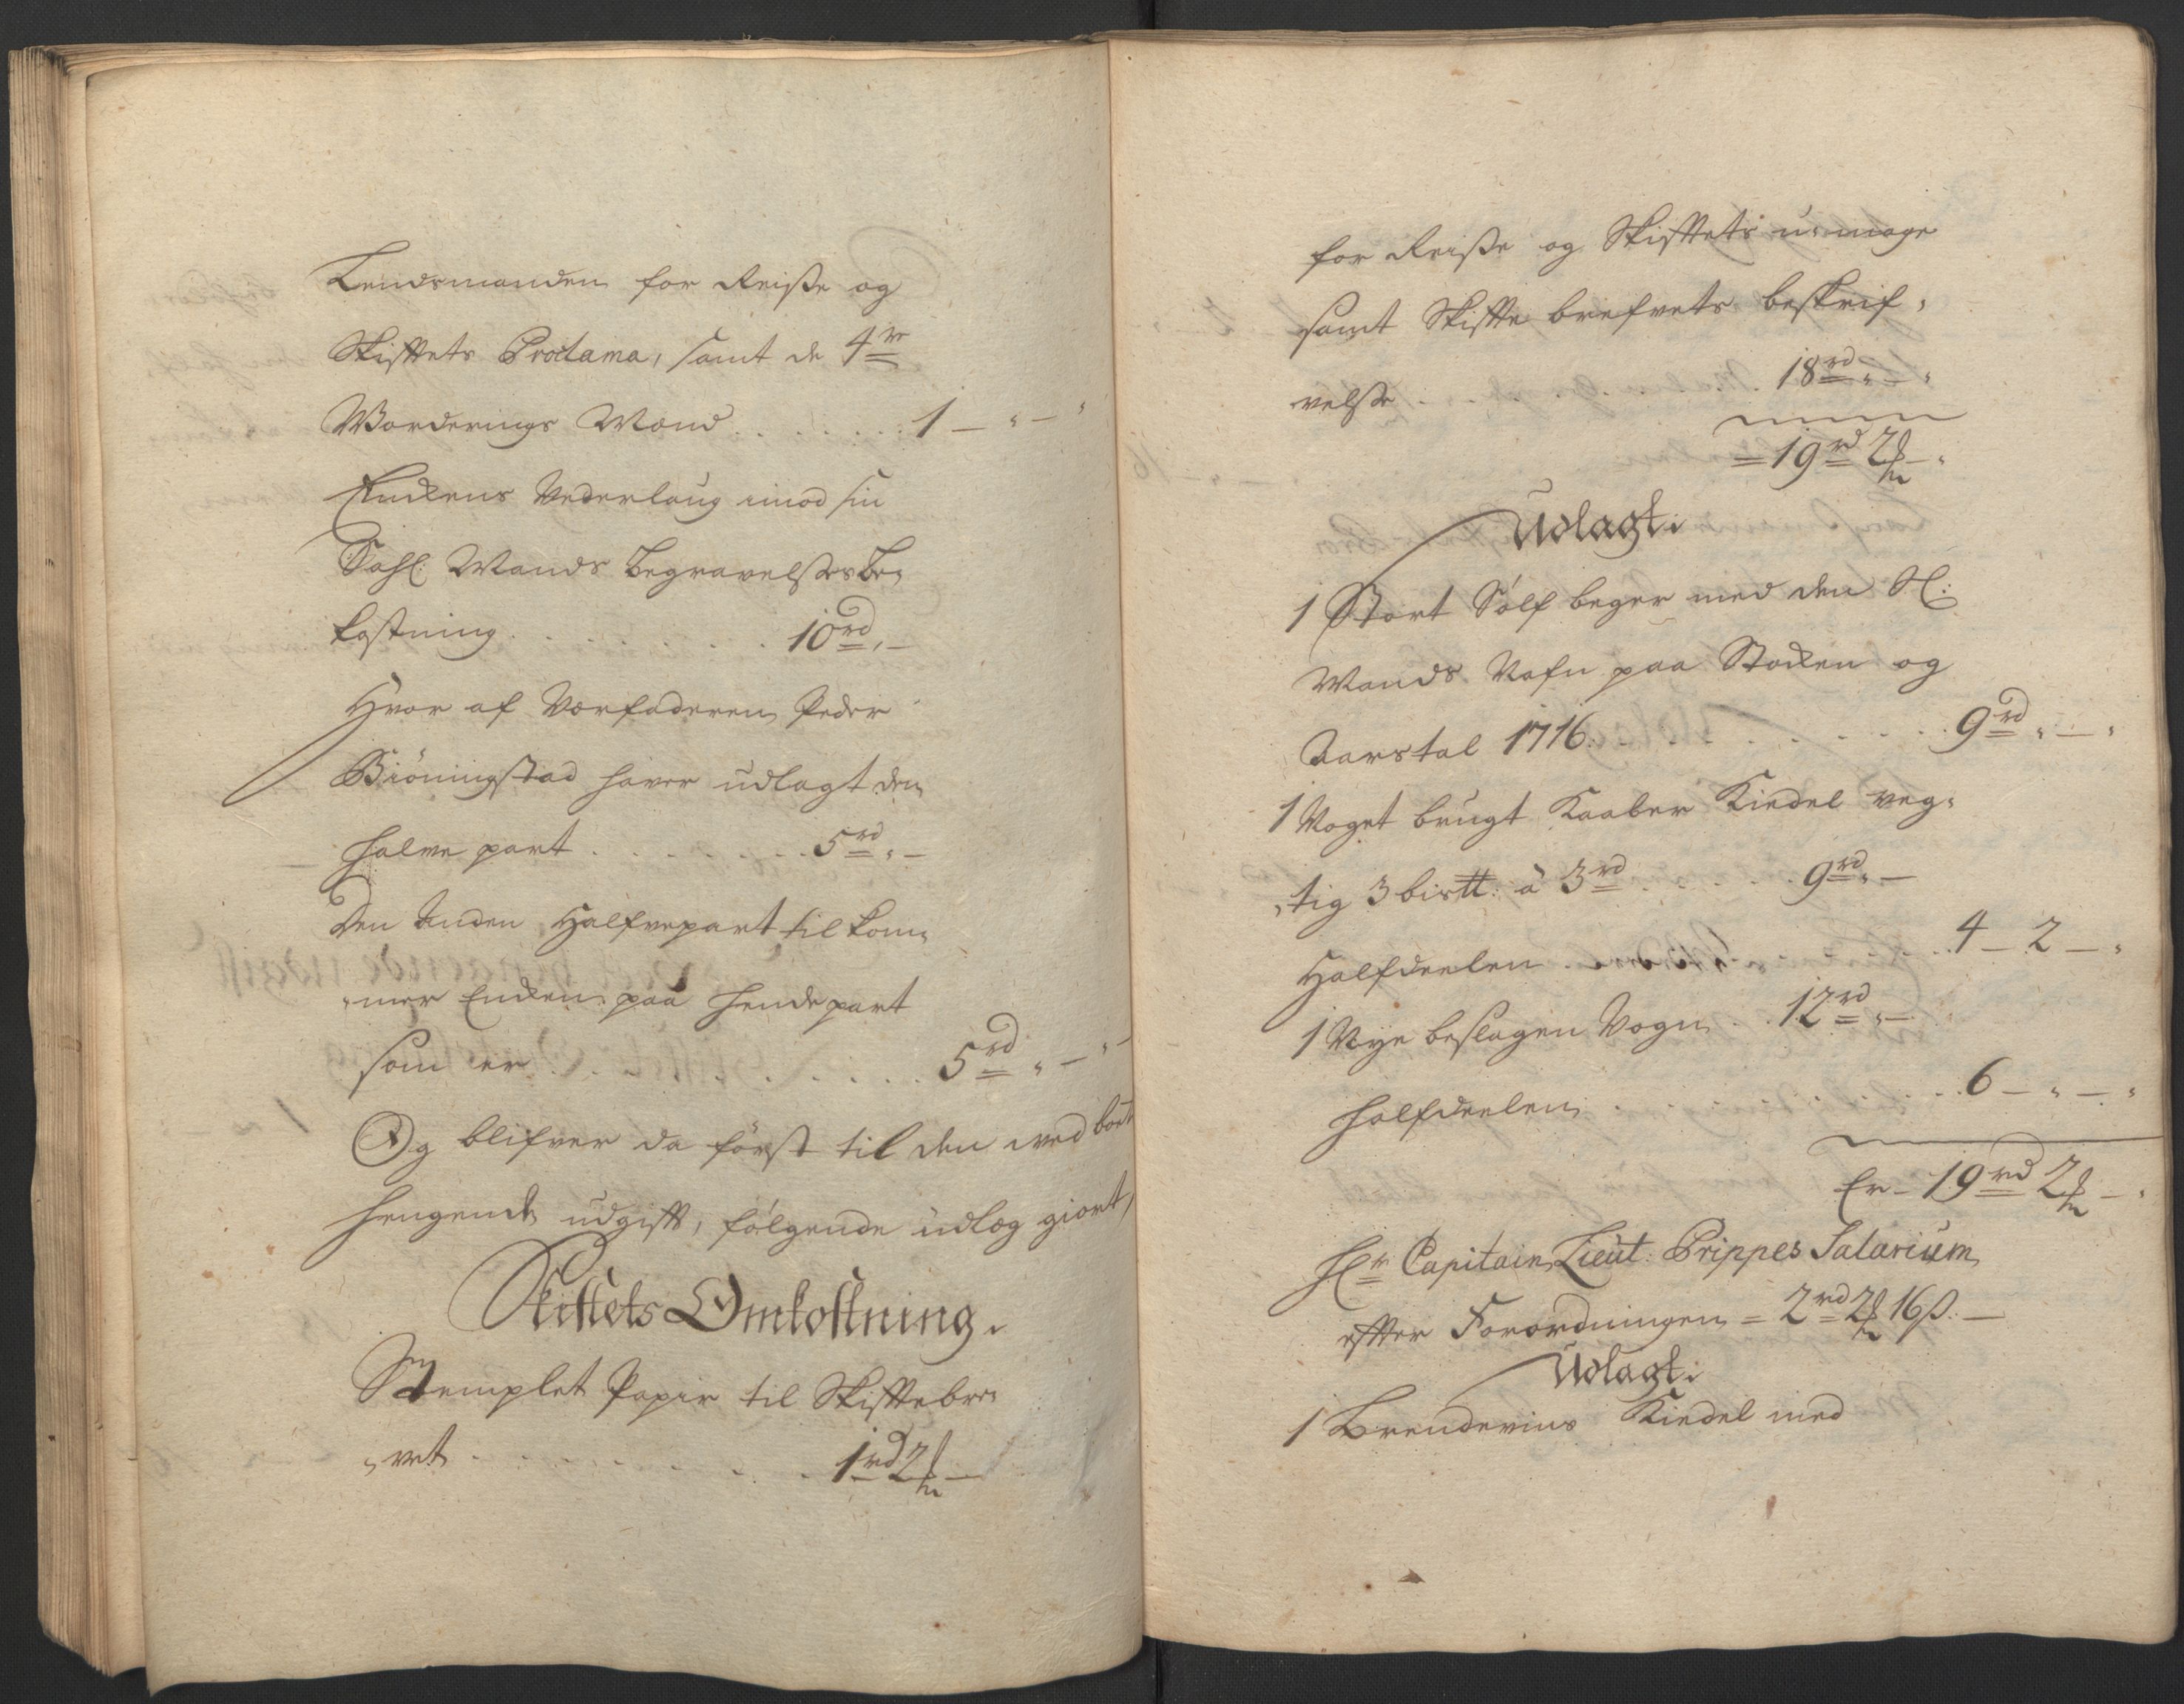 Lendsmanden for Reiße og
Skifftets Proclama, samt de 4re
Worderings Mænd . . . . . . . 1 — " — "
Enckens Vederlaug imod sin
Sahl: Mands Begravelses Be,
kostning . . . . . . . . 10rd, —
Hvor af Værfaderen Peder
Biöningstad haver udlagt den
halve part . . . . . . . 5rd " —
Den Anden Halfvepart til kom,
"mer Encken paa hende part
som er . . . . . . . . . 5rd " — " —
Og blifver da först til den ved bort
hengende udgifft, fölgende udlæg giort,
Skiftets Omkostning.
Stemplet Papir til Skifftebre,
"vet . . . . . . . . . 1rd 2 —
for Reiße og Skifftets u,mage
samt Skiffte brefvets beskrif,
velße . . . . . . . 18rd " — "
= 19rd 2 — "
Udlagt.
1 Stort Sölf beger med den Sl:
Mands Nafn paa Stocken og
Aarstal 1716 . . . . . . . . 9rd " — "
1 Noget brugt Kaaber Kiedel veg,
"tig 3 bis℔: à 3rd . . . . . 9rd " —
Halfdeelen . . . . . . . . . 4 — 2 — "
1 Nye beslagen Vogn . . 12rd " —
halfdeelen . . . . . . . . . 6 — " — "
Er — 19rd 2 — "
Hr Capitain Lieut: Grippes Salarium
effter Forordningen = 2rd 2 16ß. —
Udlagt.
1 Brendeviins Kiedel med